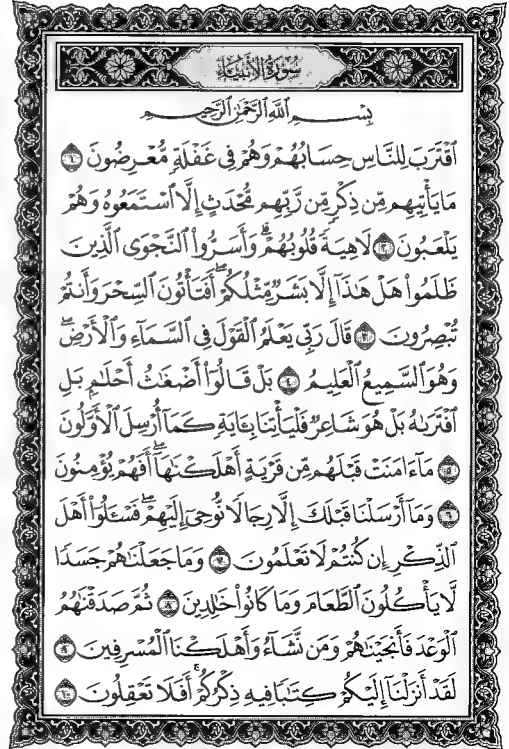 سُورَةُ الْأَنْبِيَاءِ
بِسْمِ اللَّهِ الرَّحْمَٰنِ الرَّحِيمِ
اَقْتَرَبَ لِلنَّاسِ حِسَابُهُمْ وَهُمْ فِي غَفْلَةٍ مُّعْرِضُونَ ١
مَا يَأْتِيهِم مِّن ذِكْرٍ مِّن رَّبِّهِم مُّحْدَثٍ إِلَّا ٱسْتَمَعُوهُ وَهُمْ
يَلْعَبُونَ ٢ لَاهِيَةً قُلُوبُهُمْ ۗ وَأَسَرُّوا۟ ٱلنَّجْوَى ٱلَّذِينَ
ظَلَمُوا۟ هَلْ هَٰذَآ إِلَّا بَشَرٌ مِّثْلُكُمْ ۖ أَفَتَأْتُونَ ٱلسِّحْرَ وَأَنتُمْ
تُبْصِرُونَ ٣ قَالَ رَبِّي يَعْلَمُ ٱلْقَوْلَ فِي ٱلسَّمَآءِ وَٱلْأَرْضِ ۖ
وَهُوَ ٱلسَّمِيعُ ٱلْعَلِيمُ ٤ بَلْ قَالُوٓا۟ أَضْغَٰثُ أَحْلَٰمٍ بَلِ
ٱفْتَرَىٰهُ بَلْ هُوَ شَاعِرٌ فَلْيَأْتِنَا بِـَٔايَةٍ كَمَآ أُرْسِلَ ٱلْأَوَّلُونَ
٥ مَآ ءَامَنَتْ قَبْلَهُم مِّن قَرْيَةٍ أَهْلَكْنَٰهَآ ۖ أَفَهُمْ يُؤْمِنُونَ
٦ وَمَآ أَرْسَلْنَا قَبْلَكَ إِلَّا رِجَالًا نُّوحِىٓ إِلَيْهِمْ ۖ فَسْـَٔلُوٓا۟ أَهْلَ
ٱلذِّكْرِ إِن كُنتُمْ لَا تَعْلَمُونَ ٧ وَمَا جَعَلْنَٰهُمْ جَسَدًا
لَّا يَأْكُلُونَ ٱلطَّعَامَ وَمَا كَانُوا۟ خَٰلِدِينَ ٨ ثُمَّ صَدَقْنَٰهُمُ
ٱلْوَعْدَ فَأَنجَيْنَٰهُمْ وَمَن نَّشَآءُ وَأَهْلَكْنَا ٱلْمُسْرِفِينَ ٩
لَقَدْ أَنزَلْنَآ إِلَيْكُمْ كِتَٰبًا فِيهِ ذِكْرُكُمْ ۖ أَفَلَا تَعْقِلُونَ ١٠